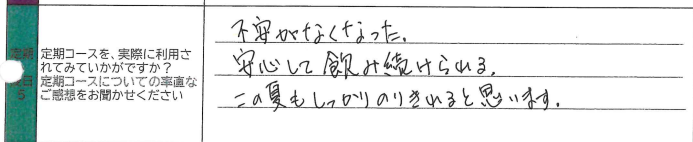 定期コースを、実際に利用さ
れてみていかがですか？
定期コースについての率直な
ご感想をお聞かせください
不安がなくなった。
安心して飲み続けられる。
この夏もしっかりのりきれると思います。